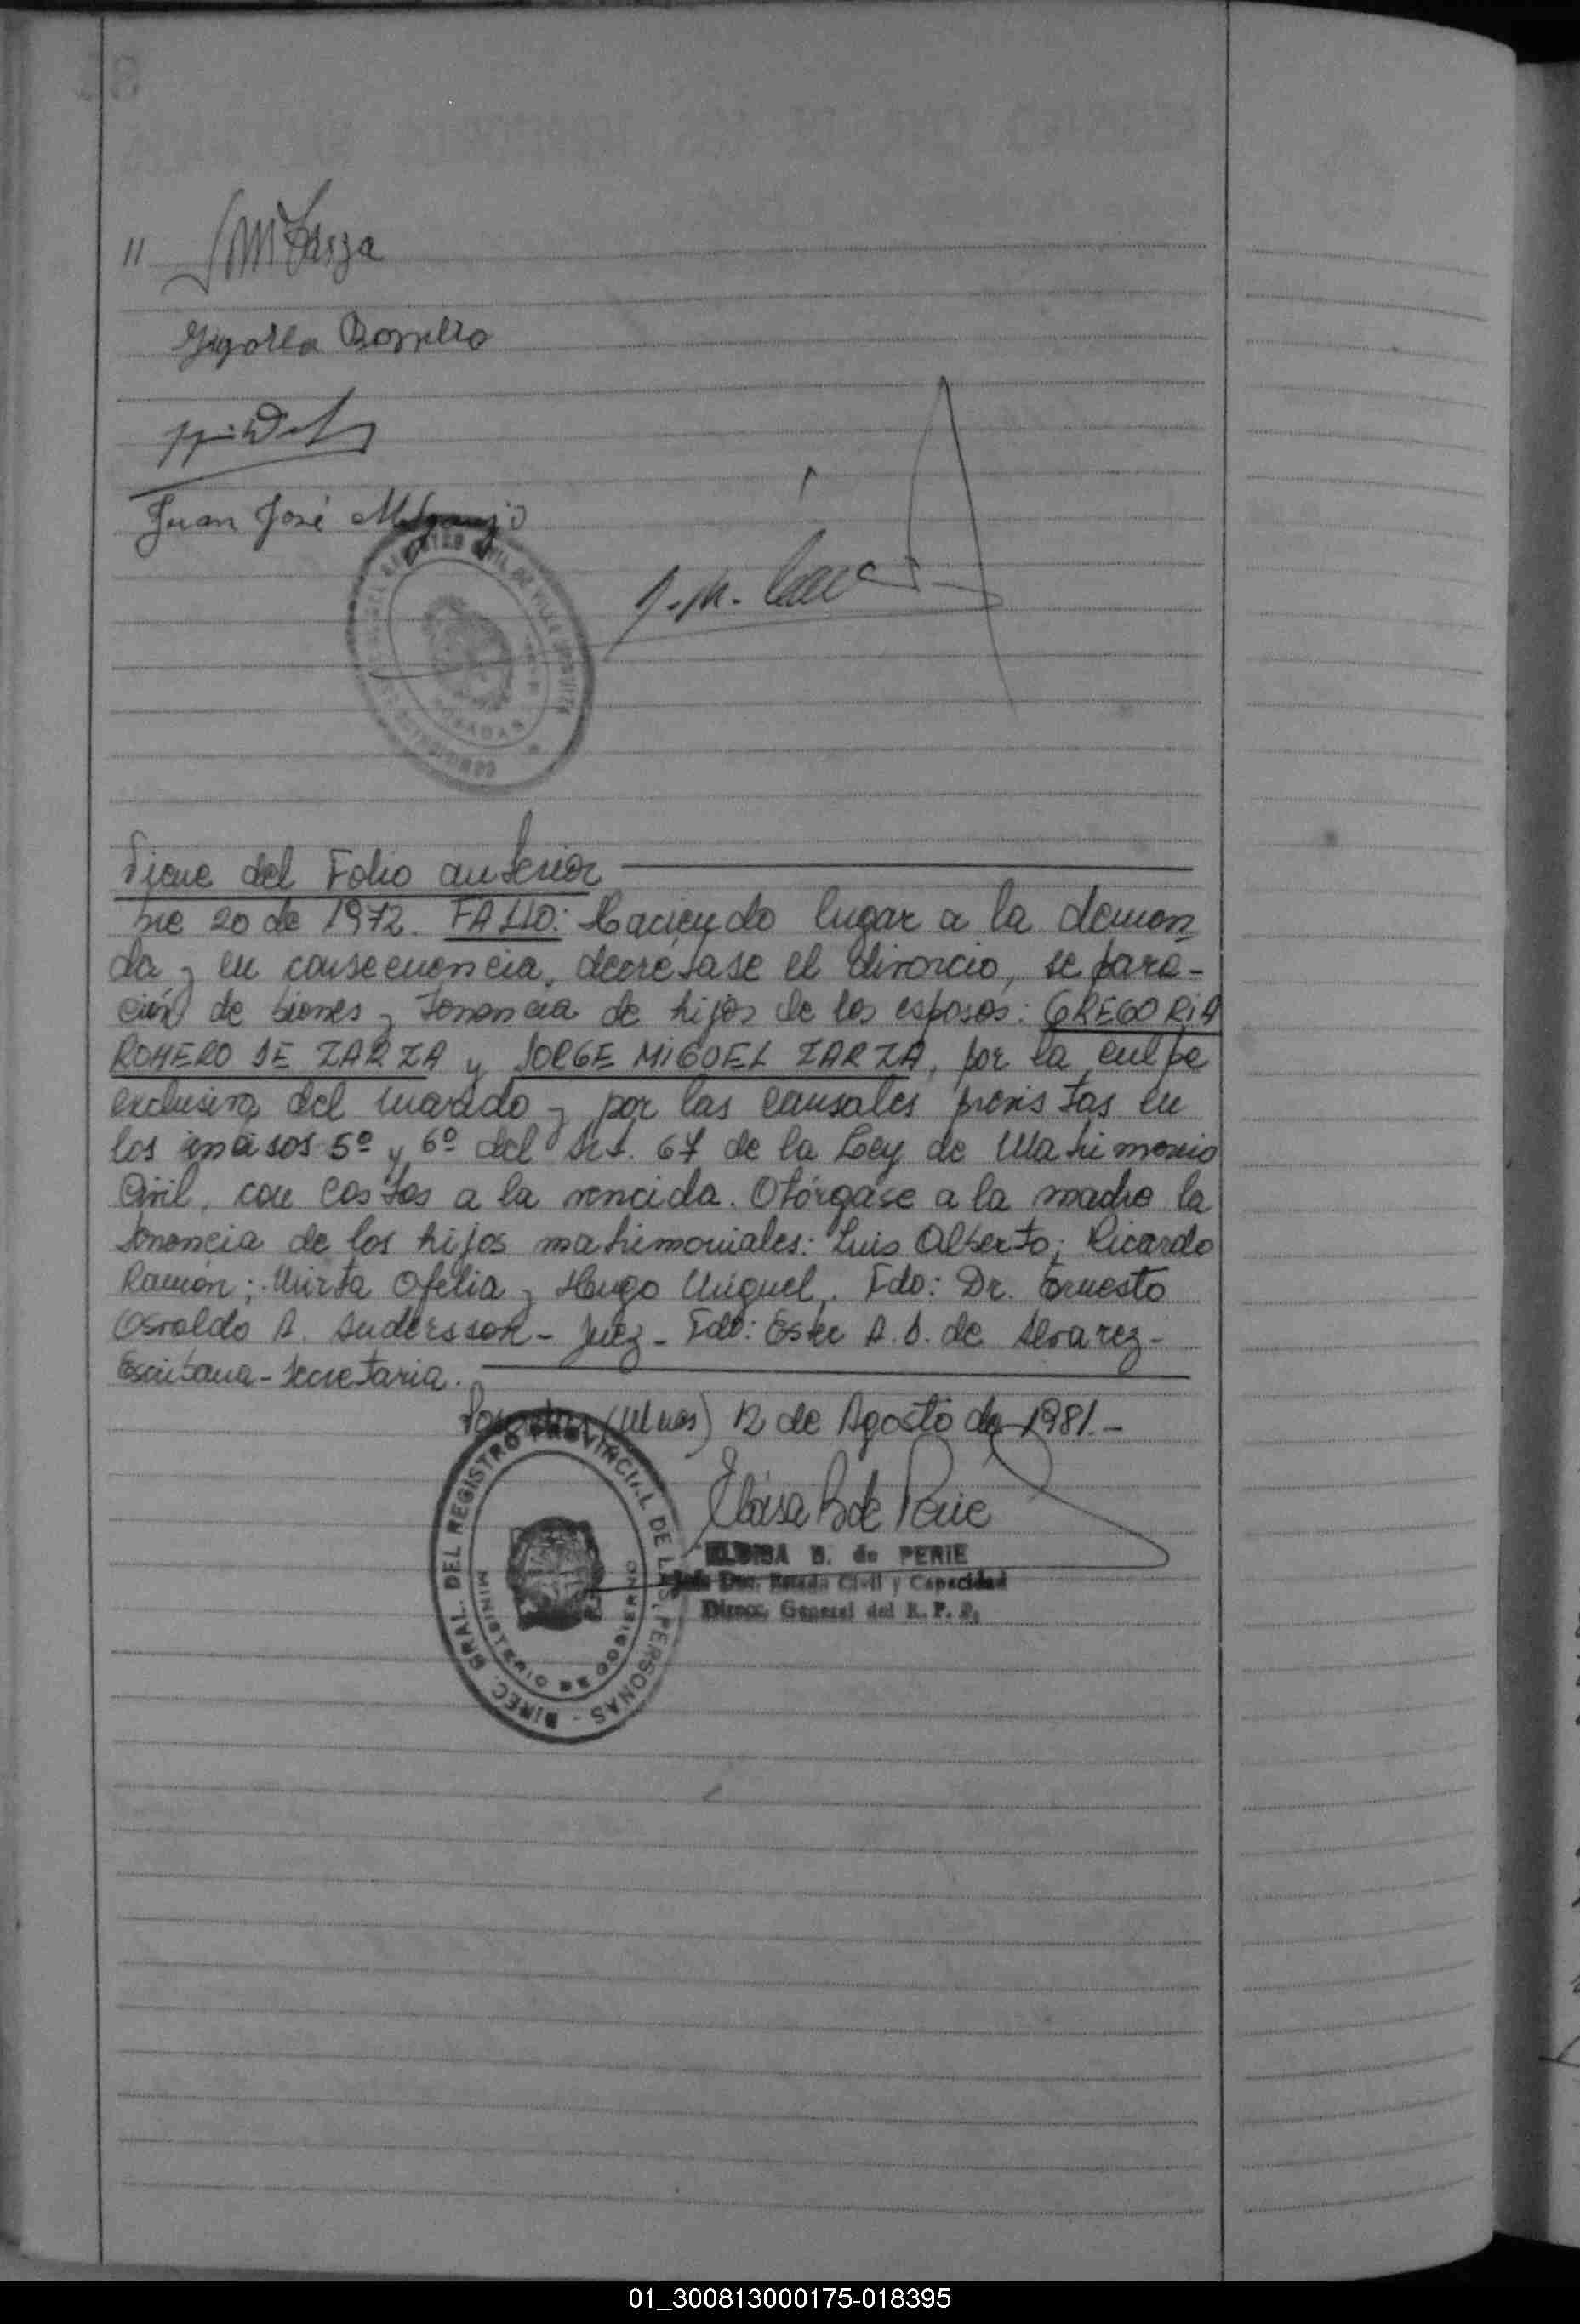 " J M Zarza
Juan José
J. M.
REGISTRO CIVIL DE VILLA URQUIZA
POSADAS
Viene del Folio anterior
bre 20 de 1972. FALLO: Haciendo lugar a la deman
da y en consecuencia, decretase el divorcio, separa-
ción de bienes y tenencia de hijos de los esposos: GREGORIA
ROMERO DE ZARZA y JORGE MIGUEL ZARZA, por la culpa
exclusiva del marido y por las causales previstas en
los incisos 5º y 6º del Art. 67 de la Ley de Matrimonio
Civil, con costas a la vencida. Otórgase a la madre la
tenencia de los hijos matrimoniales: Luis Alberto; Ricardo
Ramón; Mirta Ofelia y Hugo Miguel. Fdo: Dr. Ernesto
Osvaldo A. Andersson - Juez - Fdo: Ester A. S. de Alvarez -
Escribana - Secretaria.
Posadas (Mnes) 12 de Agosto de 1981.-
Eloisa B de Perie
ELOISA B. de PERIE
Jefe Dec. Estado Civil y Capacidad
Direcc. General del R. P. P.
DIREC. GRAL. DEL REGISTRO PROVINCIAL DE LAS PERSONAS -
MINISTERIO DE GOBIERNO
01_300813000175-018395